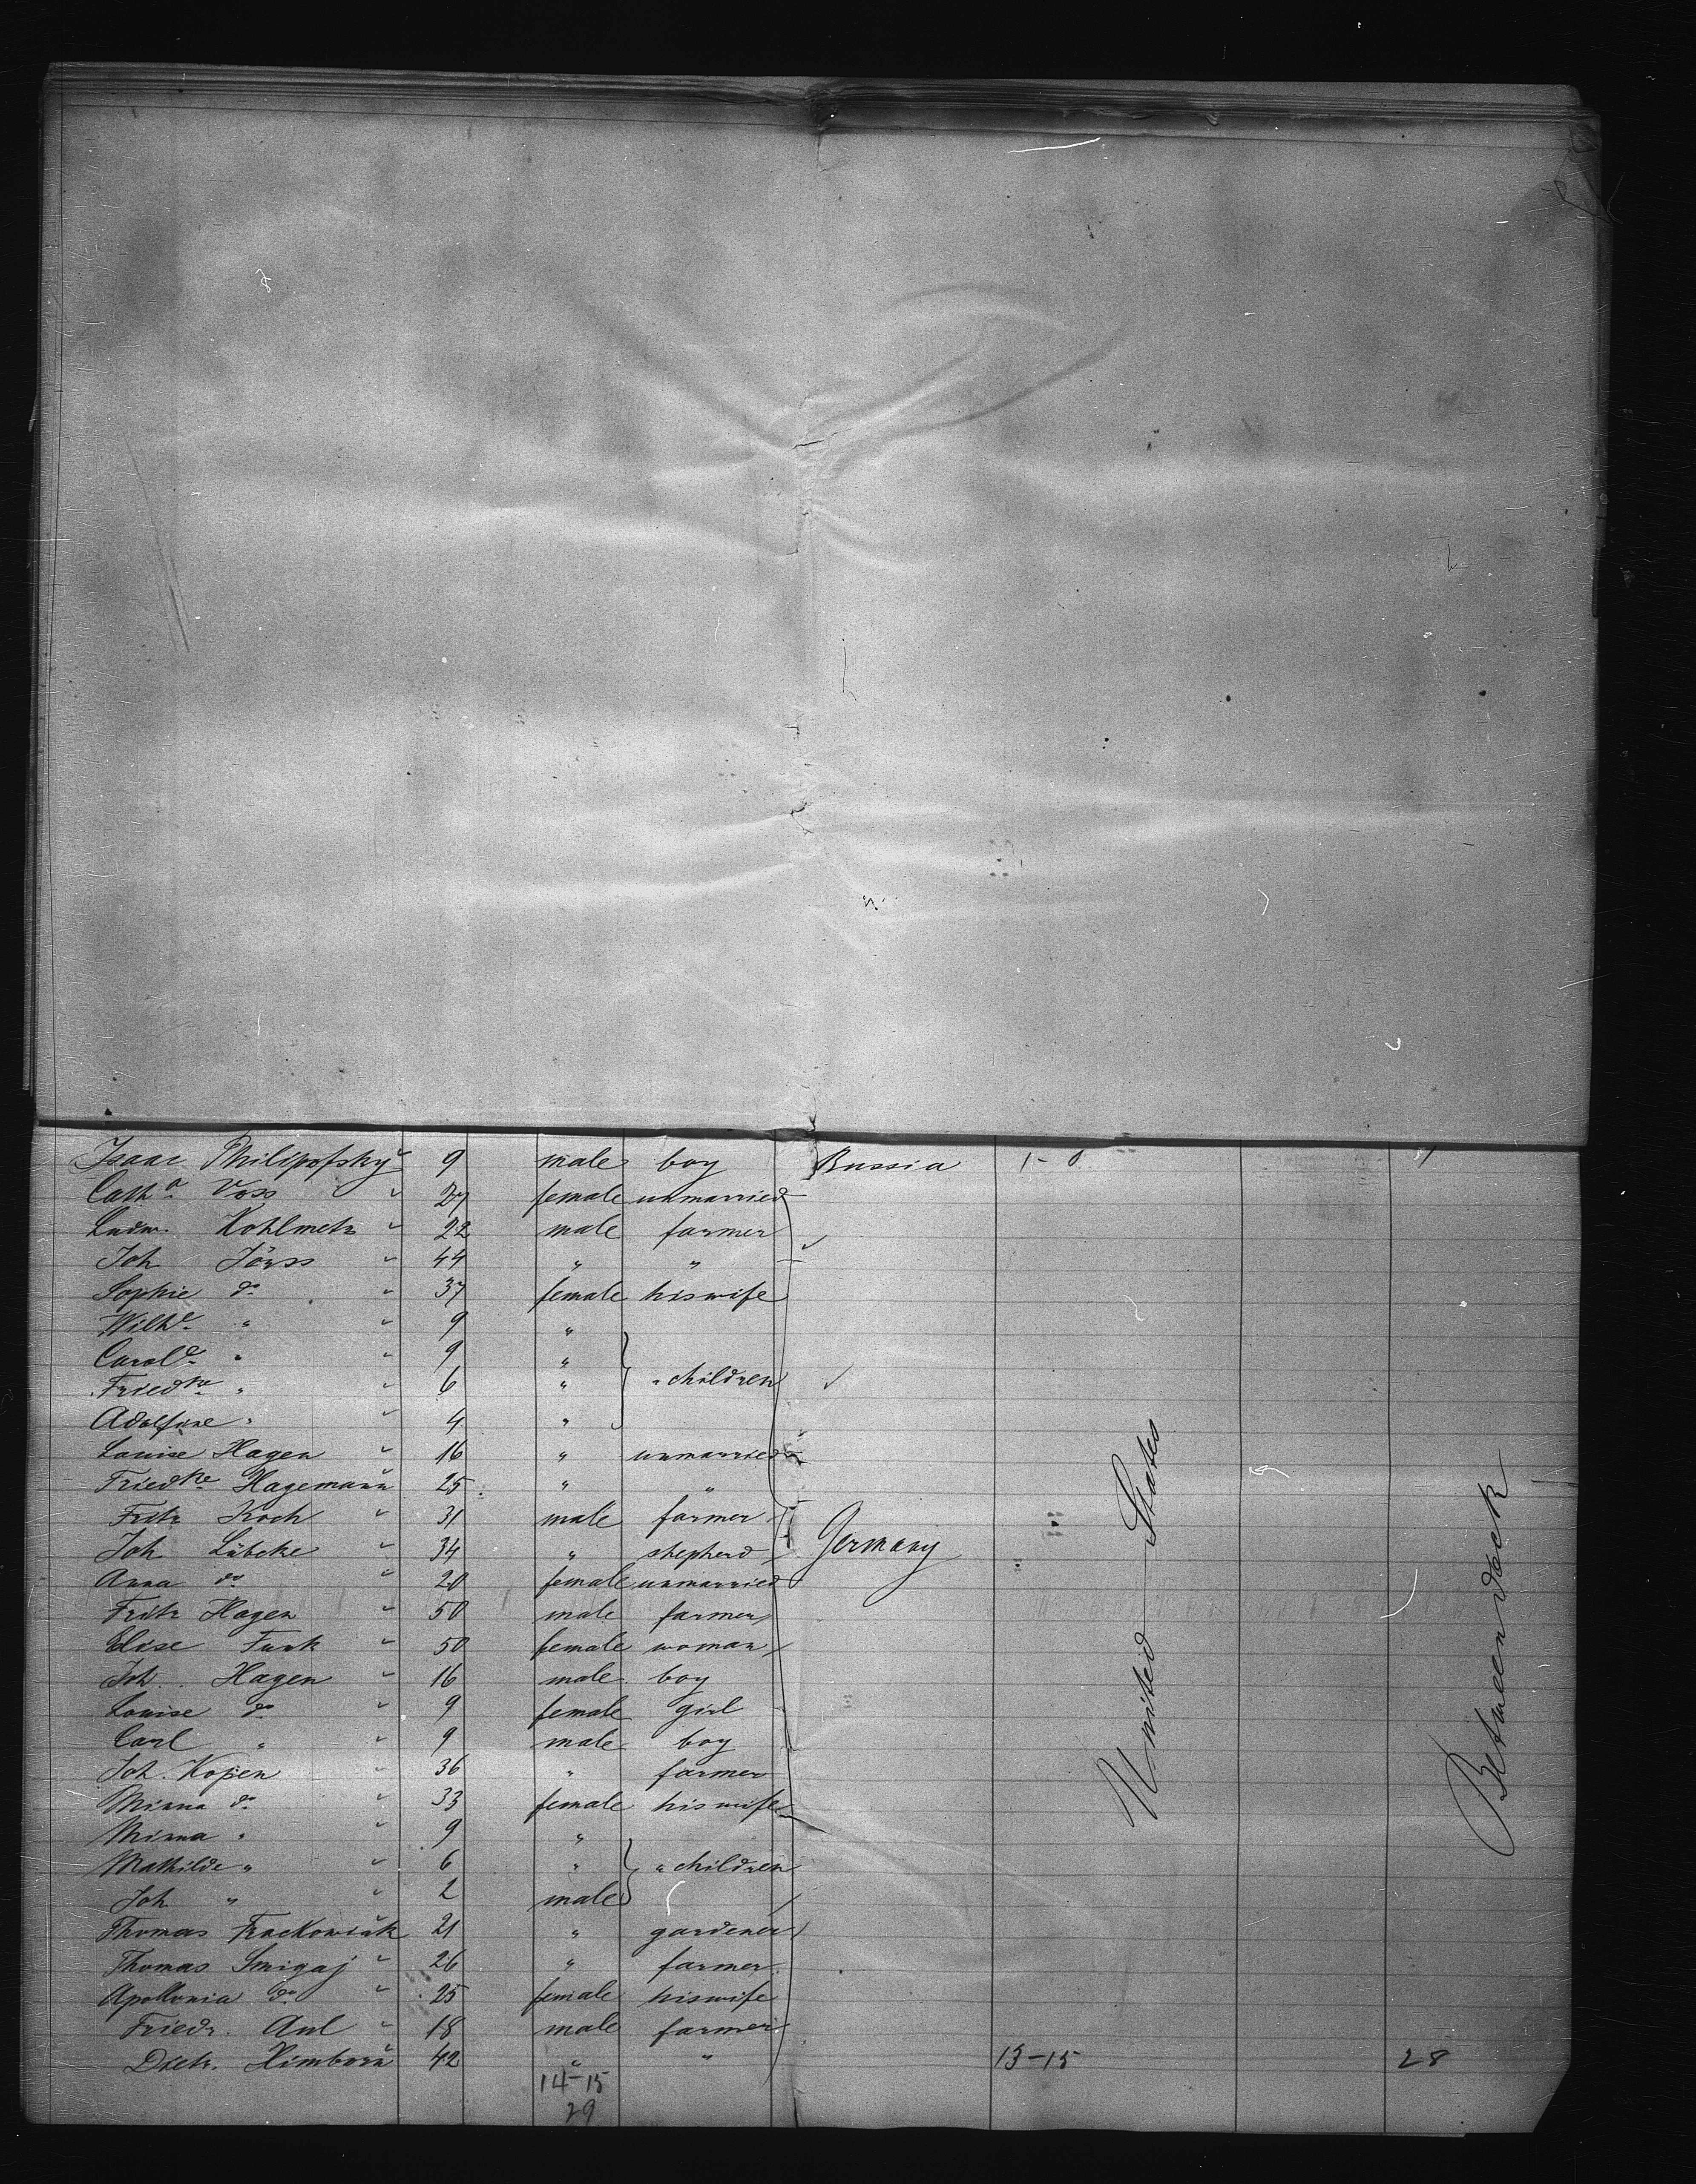 Isaac Philipofsky 9 male boy Russia 1-0 1
Cath.a Voss 27 female unmarried
Ludw. Kohlmetz 22 male farmer
Joh Jörss 44 " "
Sophie do 37 female his wife
Wilh.e " 9 "
Carol.e " 9 "
Fried.ke " 6 " " children
Adolfine " 4 "
Louise Hagen 16 " unmarried
Fried.ke Hagemann 25 " "
Fritz Koch 31 male farmer
Joh Lübcke 34 " shepherd Germany
Anna do 20 female unmarried
Fritz Hagen 50 male farmer
Elise Funk 50 female woman
Joh. Hagen 16 male boy
Louise do 9 female girl
Carl " 9 male boy
Joh. Kopen 36 " farmer
Minna do 33 female his wife
Minna " 9 "
Mathilde " 6 " " children
Joh " 2 male
Thomas Frackowiak 21 " gardener
Thomas Smigaj 26 " farmer
Apollonia do 25 female his wife
Friedr. Aul 18 male farmer
Dietr. Himborn 42 " " 13-15 28
14-15
29
United States
Between deck